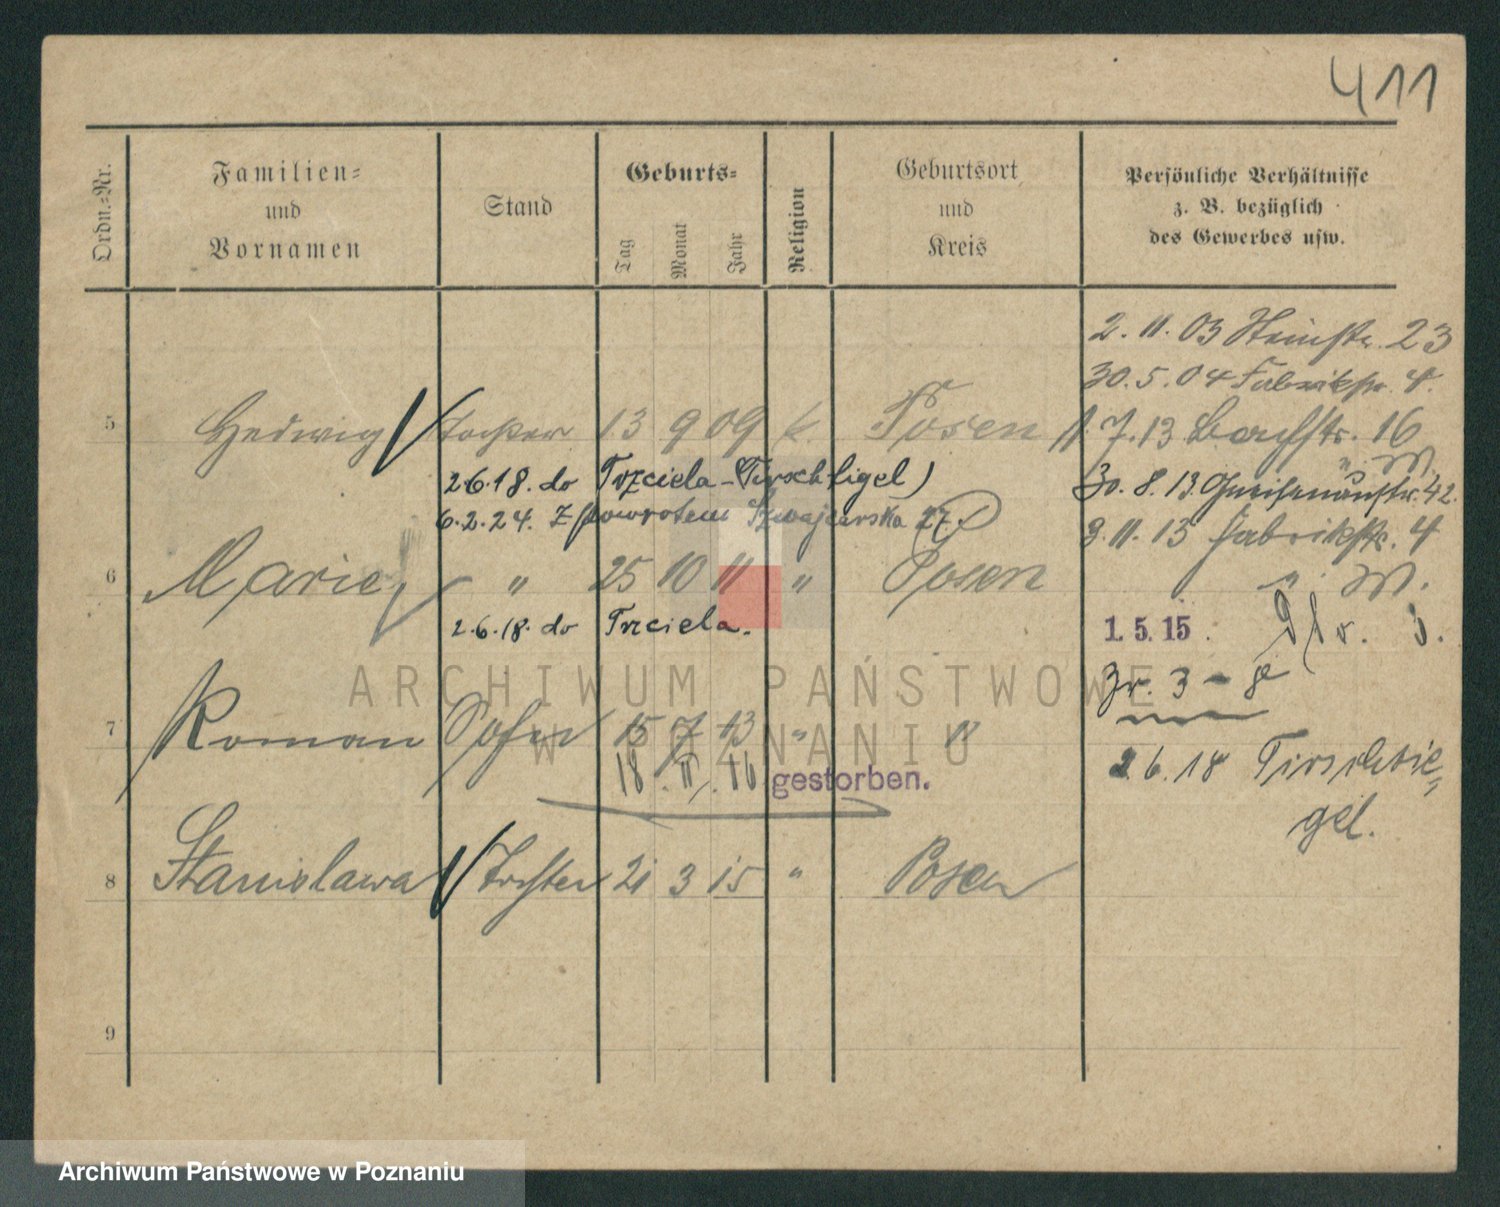 411
Ordn.-Nr.
Familien-
und
Vornamen
Stand
Geburts-
Tag
Monat
Jahr
Religion
Geburtsort
und
Kreis
Persönliche Verhältnisse
z. B. bezüglich
des Gewerbes usw.
2. 11. 03 Steinstr. 23
30. 5. 04 Fabrikstr. 4.
5 Hedwig Tochter 13 9 09 k. Posen
11. 7. 13 Bachstr. 16
" W.
2.6.18. do Trzciela-(Tirschtigel)
30. 8. 13 Gneisenaustr. 42.
6.2.24. Z powrotem Szwajcarska 27.
3. 11. 13 Fabrikstr. 4
6 Marie " 25 10 11 " Posen
" W.
2.6.18. do Trzciela.
1. 5. 15.
Zr. 3 - 8
7 Roman 15 7 13 " "
18. II. 16 gestorben.
2. 6. 18 Tirschtie-
gel.
8 Stanislawa Tochter 21 3 15 " Posen
9
ARCHIWUM PAŃSTWOWE
W POZNANIU
Archiwum Państwowe w Poznaniu